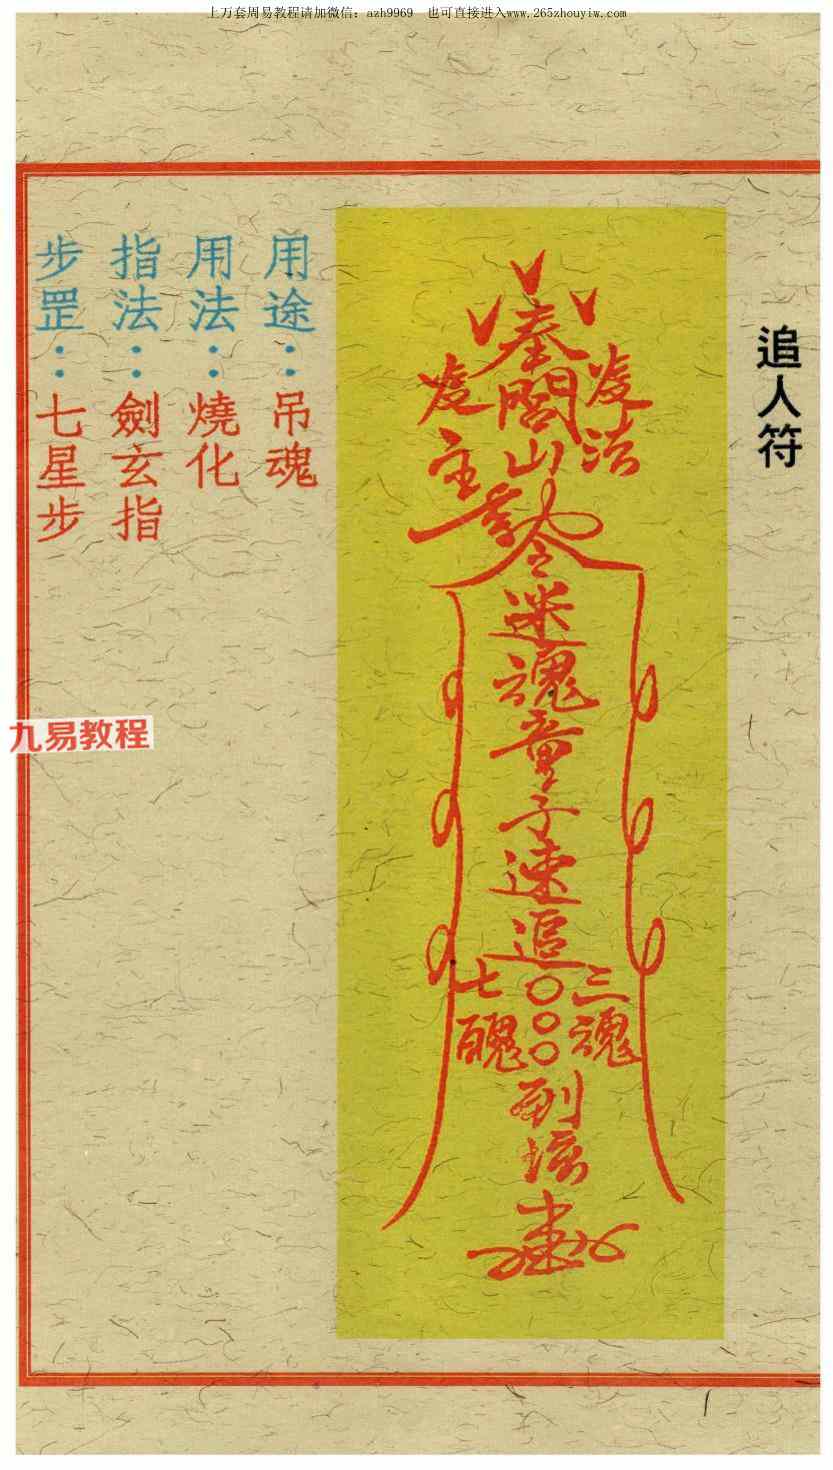 上万套周易教程请加微信：azh9969　也可直接进入www.265zhouyiw.com
追人符
奉閭山
法
主
令
迷魂童子速追
三魂
〇〇〇
七魄
到壇
用途：吊魂
用法：燒化
指法：劍玄指
步罡：七星步
九易教程